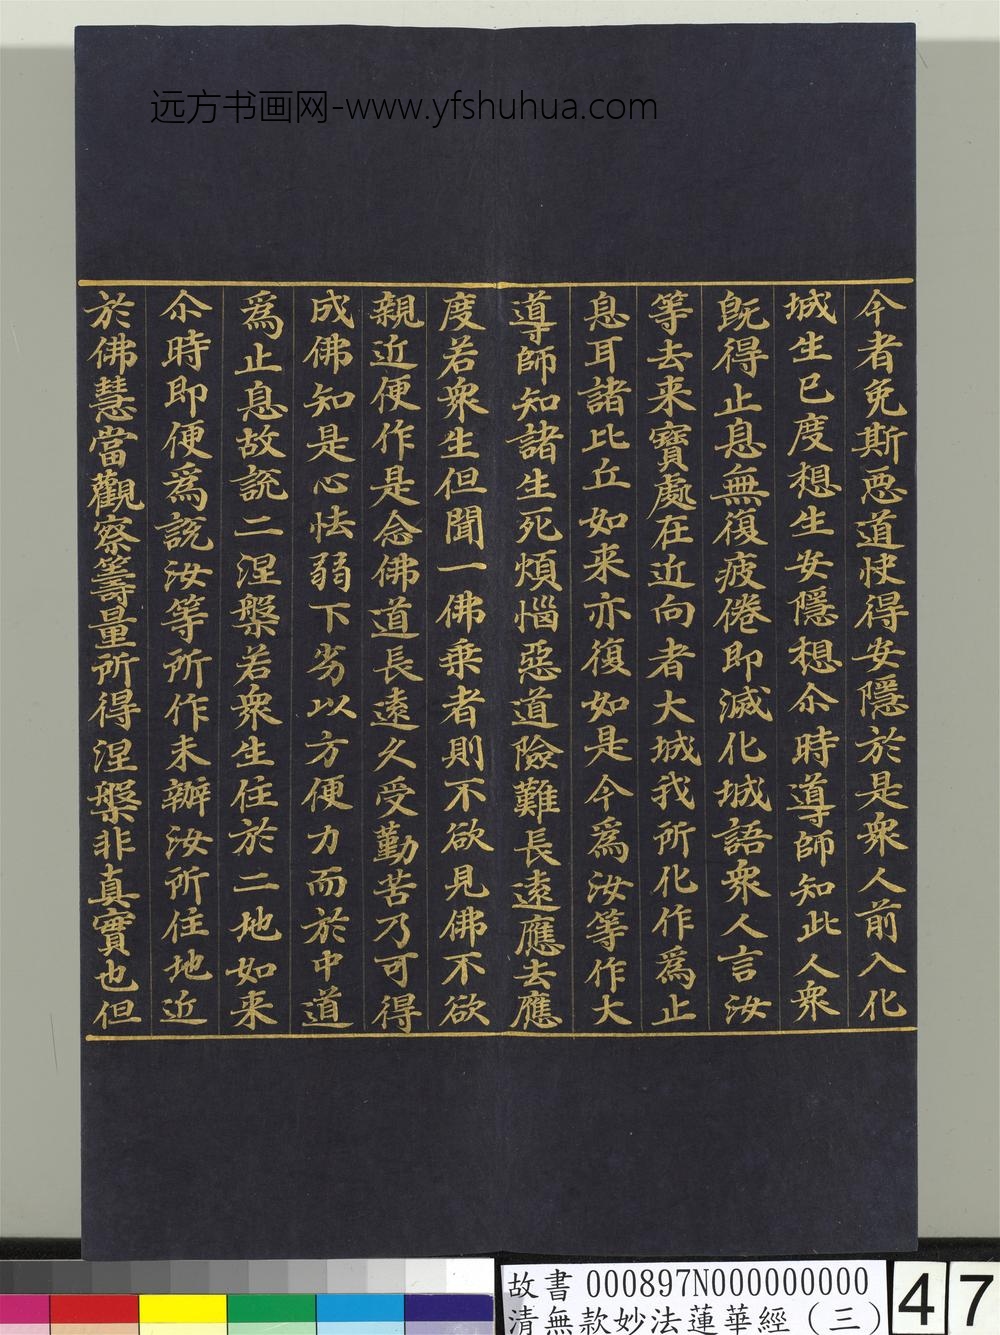 远方书画网-www.yfshuhua.com
今者免斯惡道快得安隱於是衆人前入化
城生已度想生安隱想尒時導師知此人衆
既得止息無復疲倦即滅化城語衆人言汝
等去来寶處在近向者大城我所化作為止
息耳諸比丘如来亦復如是今為汝等作大
導師知諸生死煩惱惡道險難長遠應去應
度若衆生但聞一佛乗者則不欲見佛不欲
親近便作是念佛道長遠久受勤苦乃可得
成佛知是心怯弱下劣以方便力而於中道
為止息故說二涅槃若衆生住於二地如来
尒時即便為說汝等所作未辦汝所住地近
於佛慧當觀察籌量所得涅槃非真實也但
故書 000897N000000000
清無款妙法蓮華經(三)
47